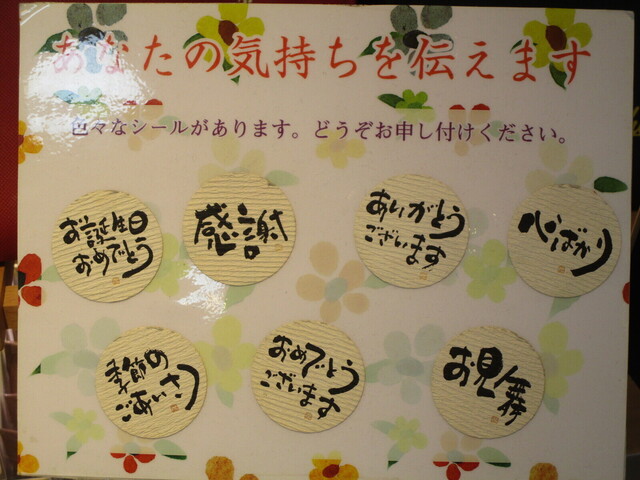 あなたの気持ちを伝えます
色々なシールがあります。どうぞお申し付けください。
お誕生日
おめでとう
感謝
ありがとう
ございます
心ばかり
季節の
ごあいさつ
おめでとう
ございます
お見舞